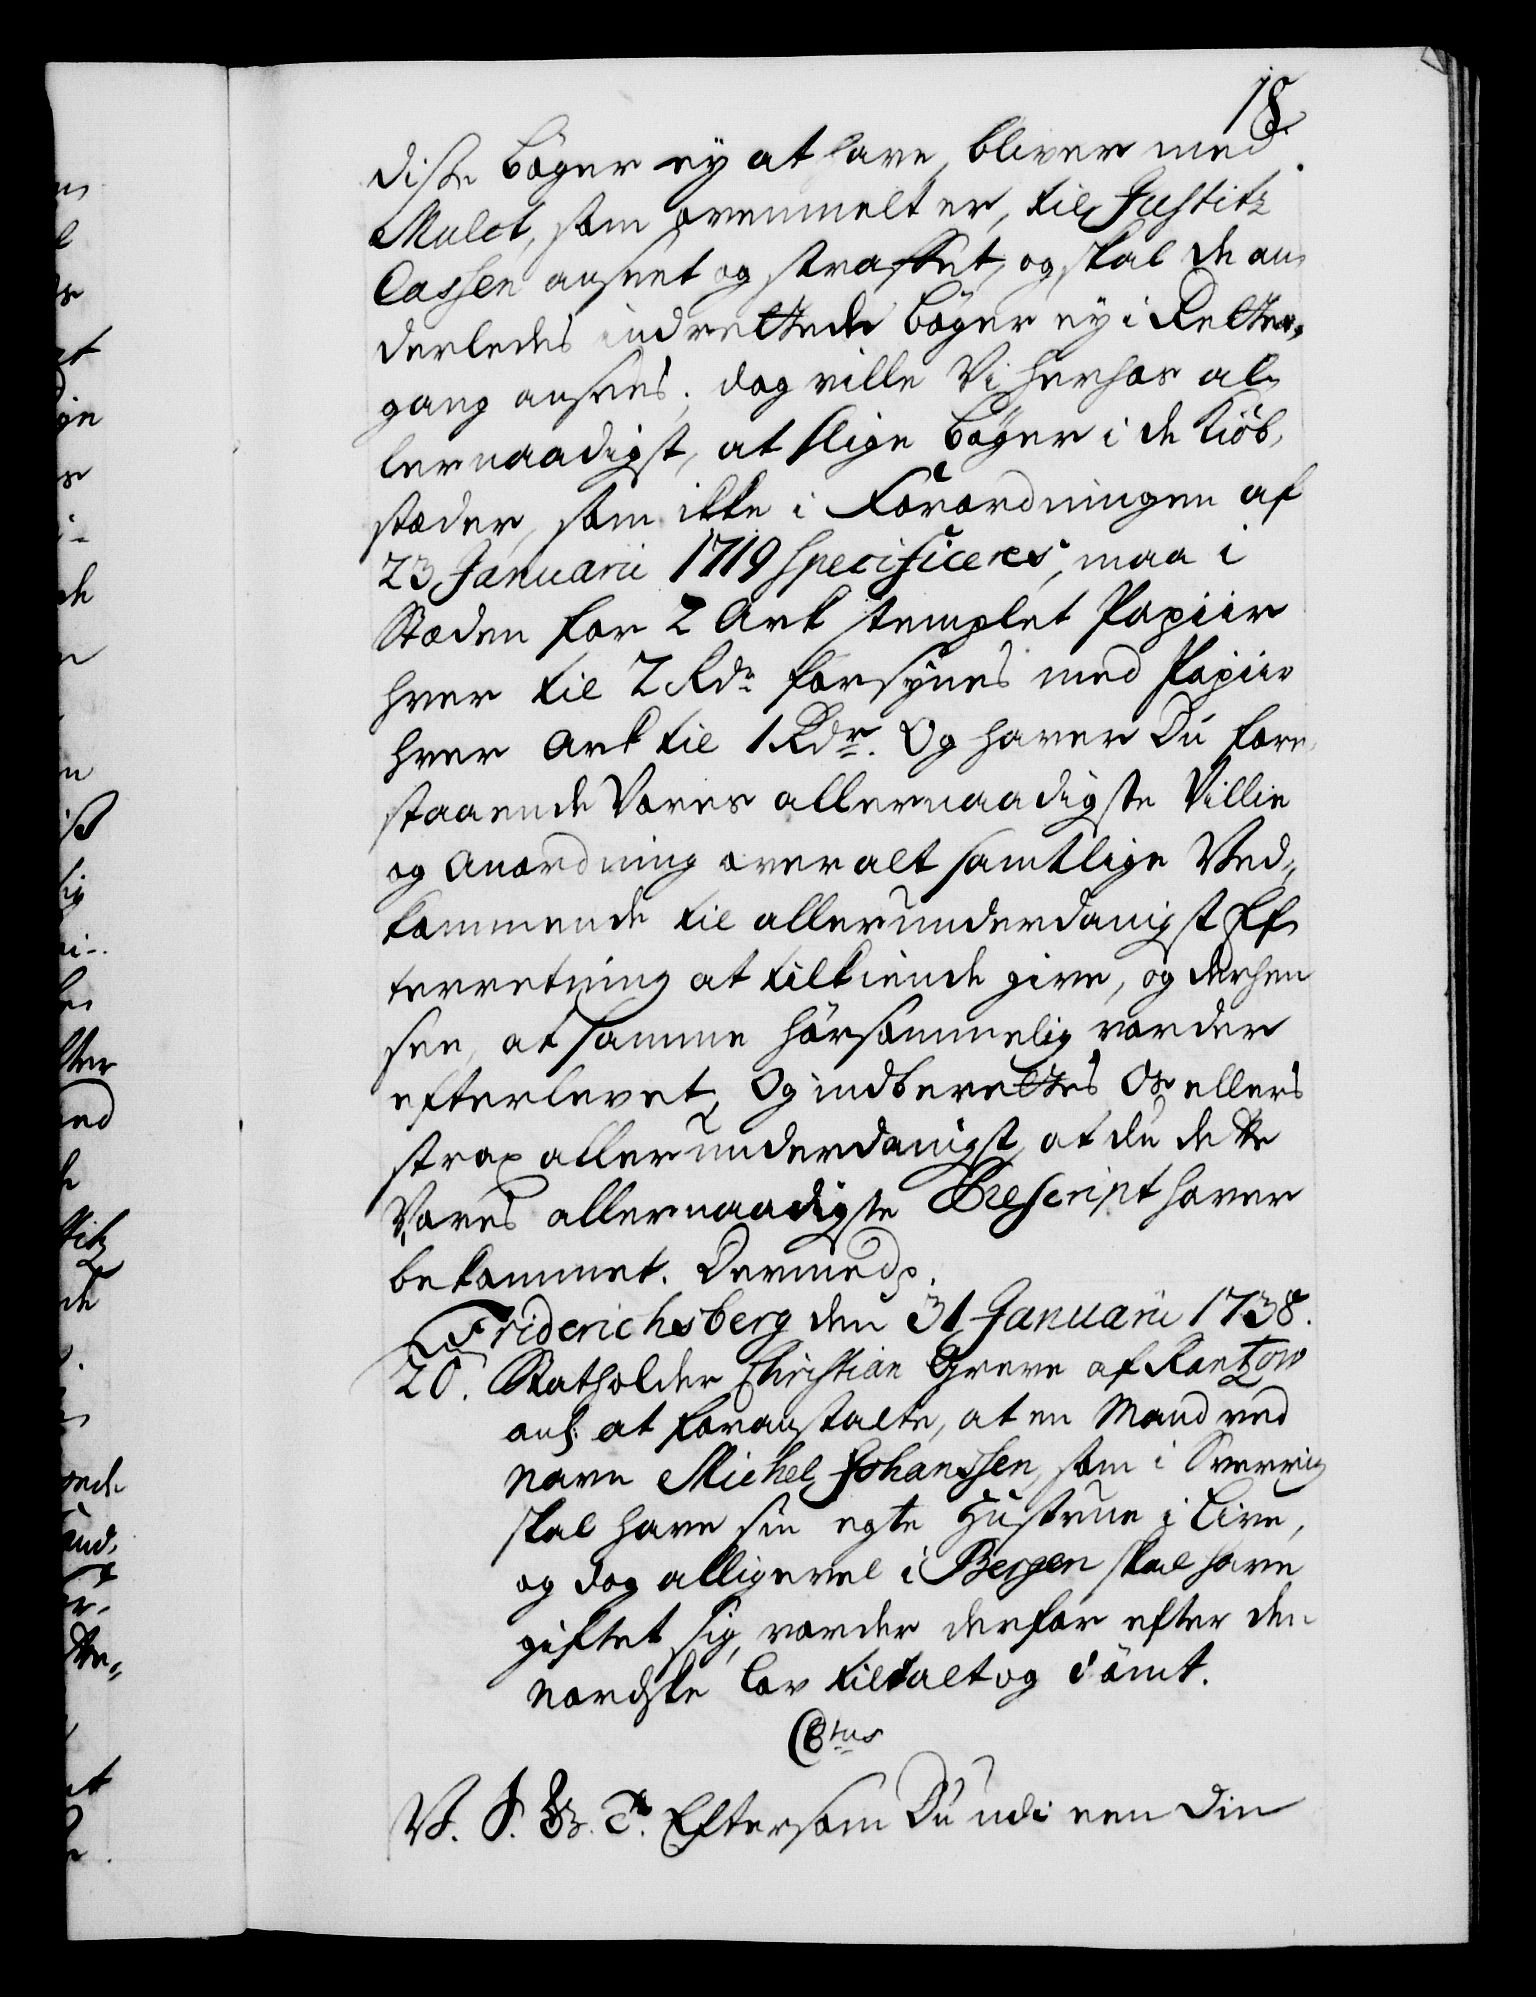 18.
disse Bøger ey at have, bliver med
Mulct, som ovenmelt er, til Justitz
Cassen anseet og straffet, og skal de an-
derledes indrettede Bøger ey i Retter-
gang ansees; dog ville Vi herhos al-
lernaadigst, at slige Bøger i de Kiöb-
stæder, som ikke i Forordningen af
23 Januarii 1719 specificeres, maa i
Stæden for 2 Ark stemplet Papiir
hver til 2 Rdr. forsynes med Papiir
hver Ark til 1 Rdr. Og haver Du fore-
staaende Vores allernaadigste Villie
og Anordning over alt samtlige Ved-
kommende til allerunderdanigst Ef-
terretning at tilkiende give, og derhen
see, at samme hørsommelig vorder
efterlevet, Og indberettes Os ellers
strax allerunderdanigst, at du dette
Vores allernaadigste Rescript haver
bekommet. Dermed p.
Friderichsberg den 31 Januarii 1738.
20. Statholder Christian Greve af Rantzow
anl. at foranstalte, at en Mand ved
Navn Michel Johanssen, som i Sverrig
skal have sin egte Hustrue i Live,
og dog alligevel i Bergen skal have
giftet sig, vorder derfor efter den
Nordske Lov tiltalt og dömt.
C 8tus
V. S. G. T. Eftersom Du udi een din